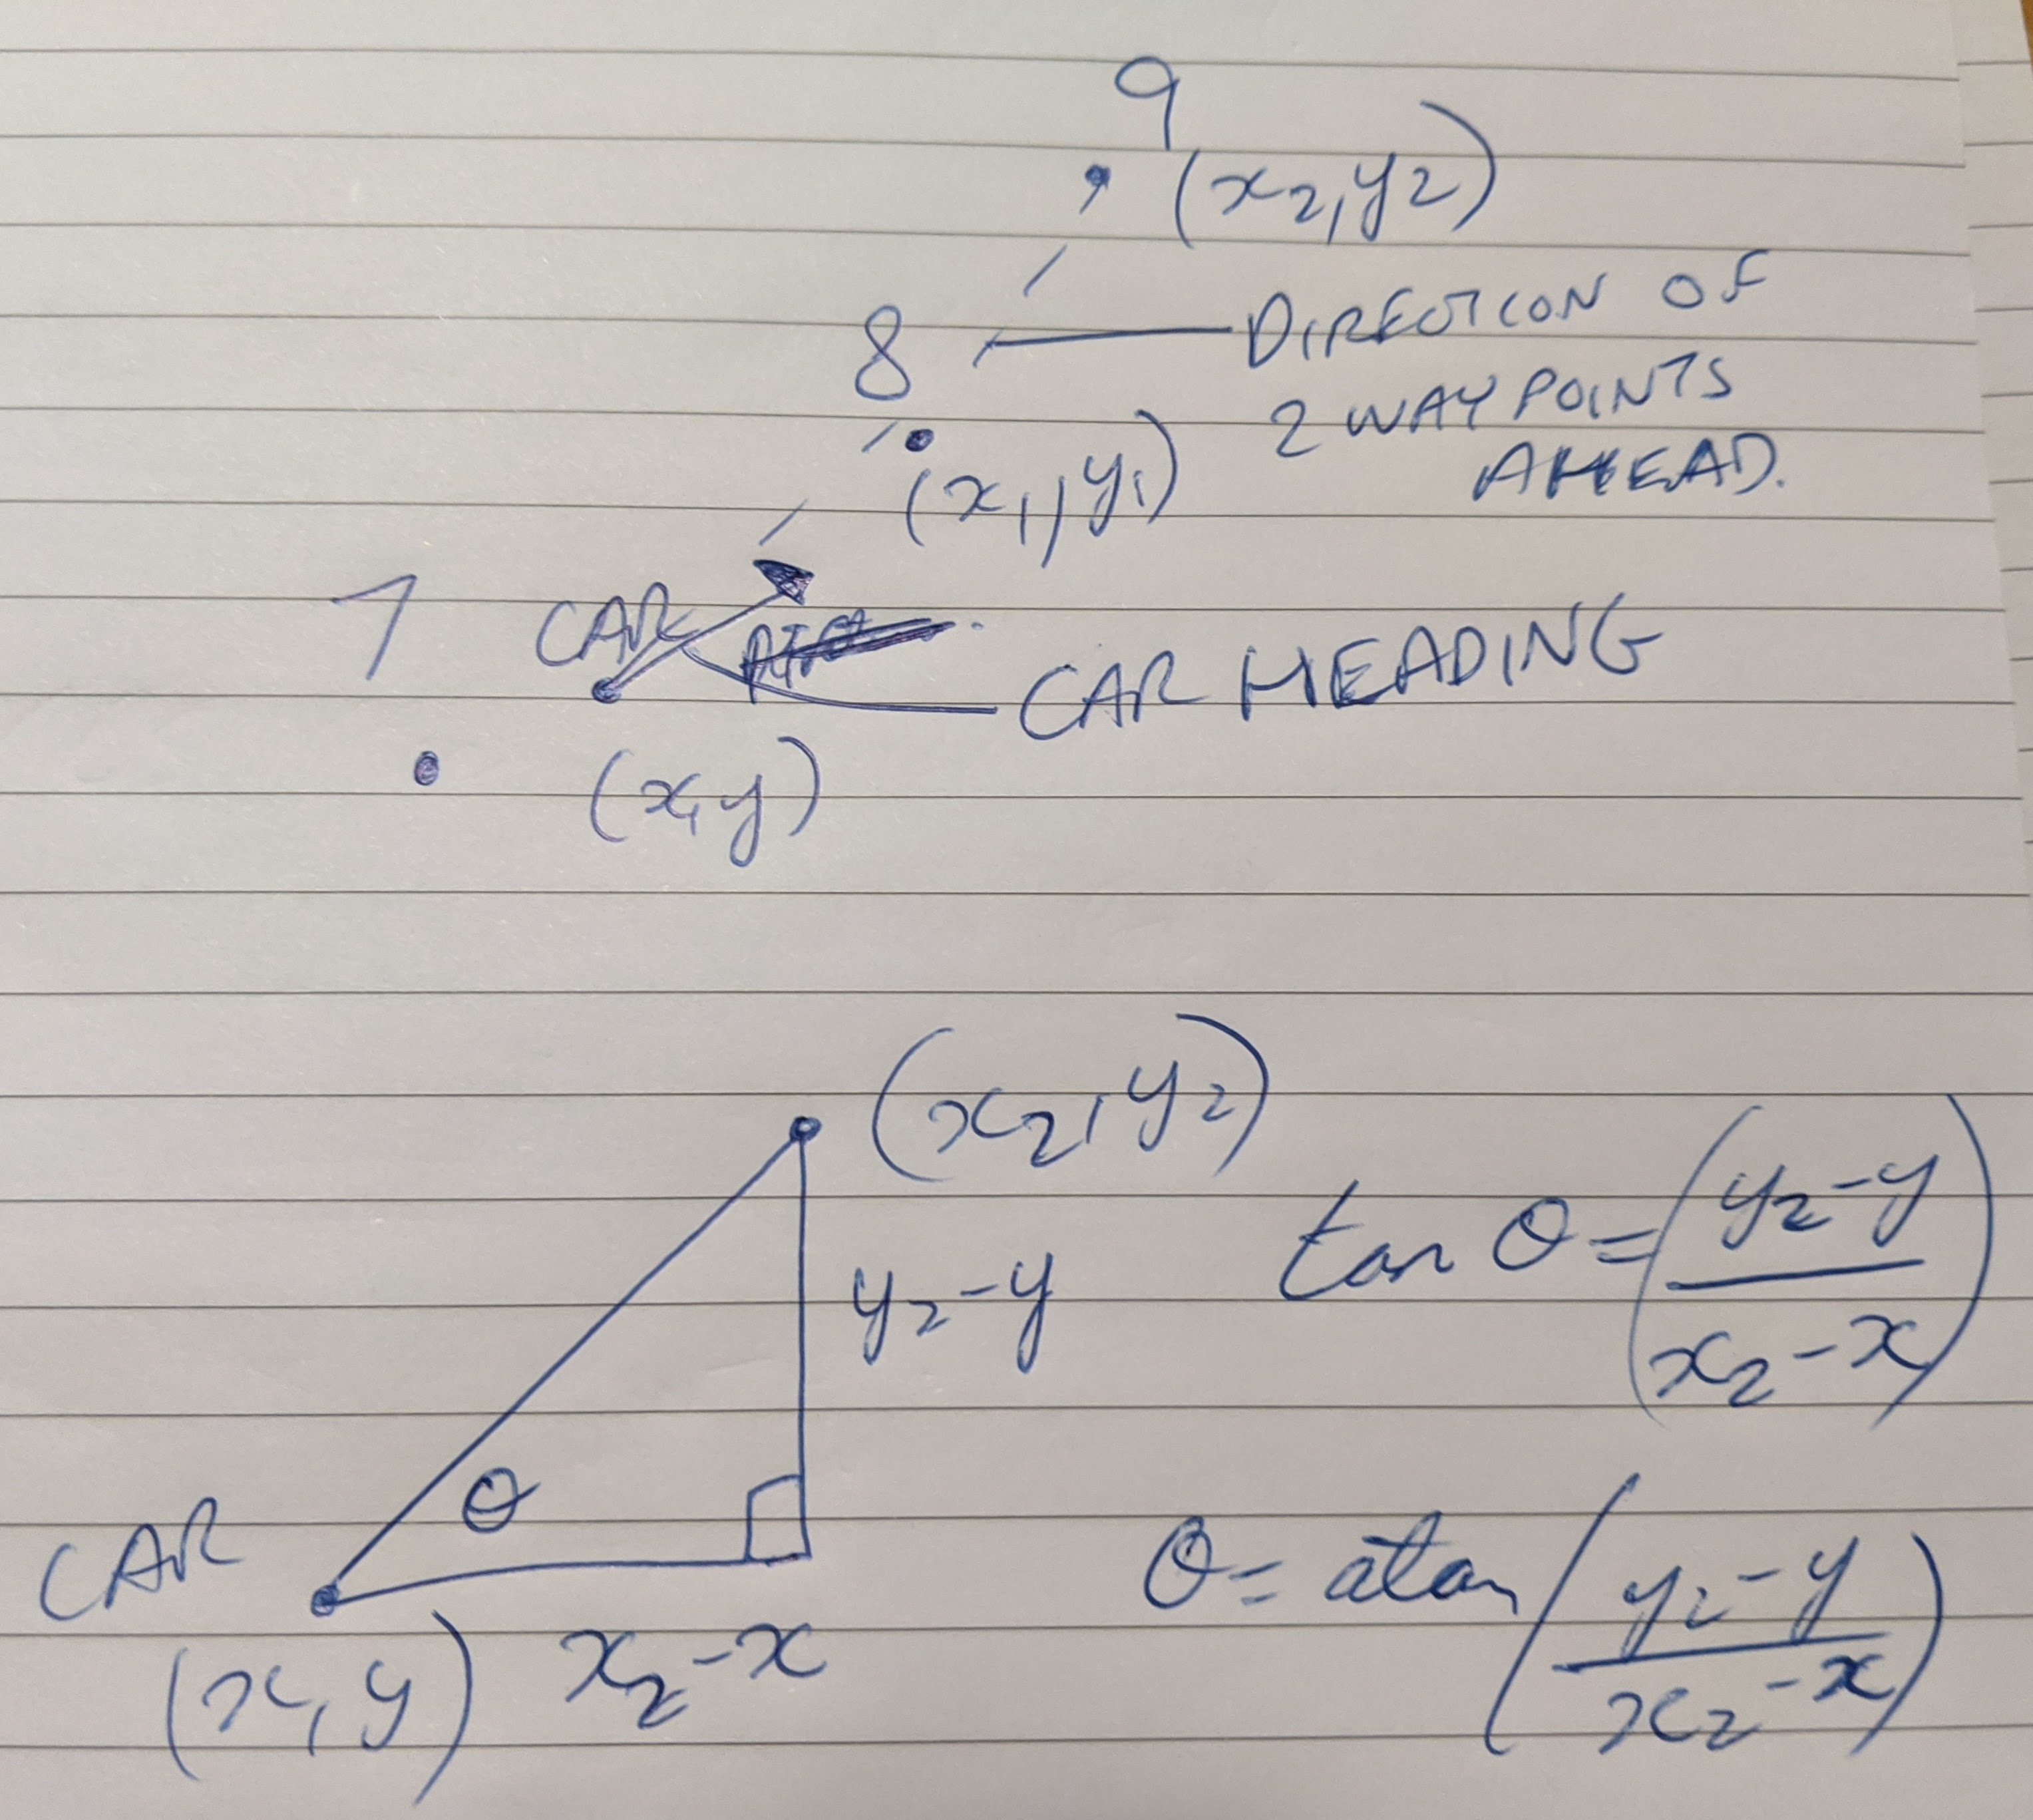 9
(x2, y2)
8
DIRECTION OF
2 WAYPOINTS
AHEAD.
(x1, y1)
7 CAR
CAR HEADING
(x, y)
(x2, y2)
y2-y
tan θ = (y2-y / x2-x)
θ
CAR
θ = atan (y2-y / x2-x)
(x, y) x2-x